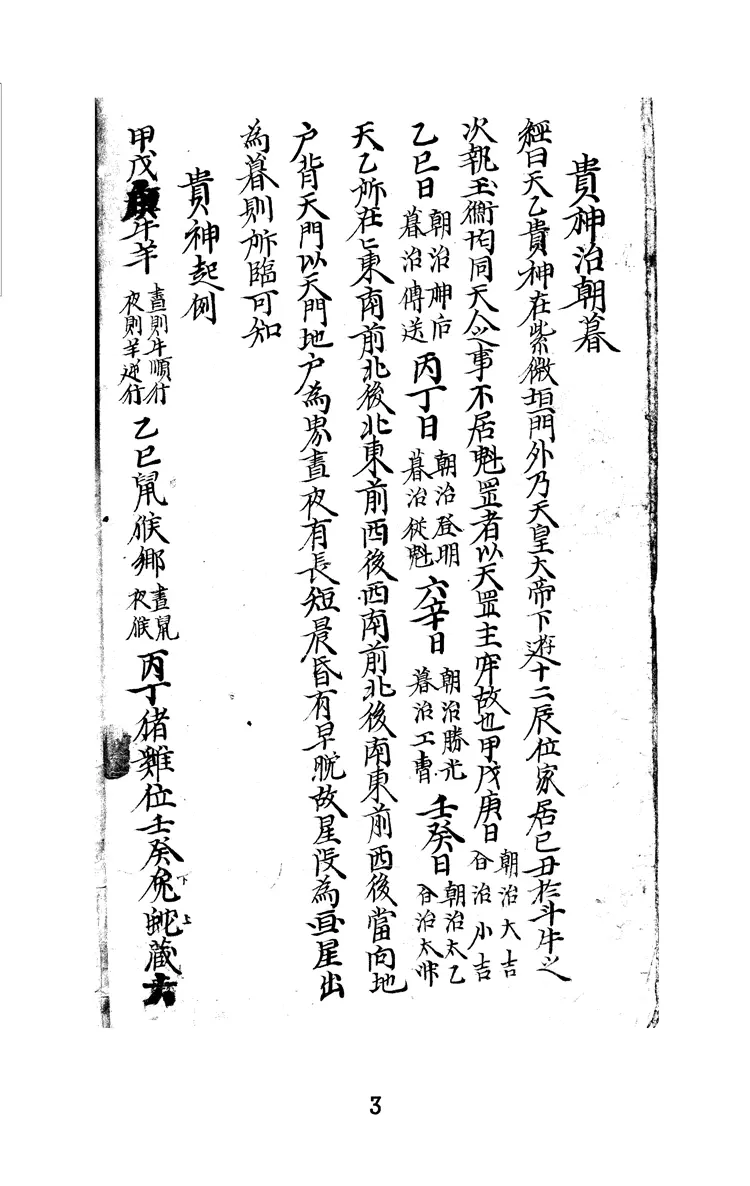 貴神治朝暮
經曰天乙貴神在紫微垣門外乃天皇大帝下遊十二辰位家居巳丑於斗牛之
次執玉衡均同天人之事不居魁罡者以天罡主牢故也甲戊庚日朝治大吉 合治小吉
乙巳日朝治神后 暮治傳送 丙丁日朝治登明 暮治從魁 六辛日朝治勝光 暮治工曹 壬癸日朝治太乙 合治太冲
天乙所在匕東南前北後北東前西後西南前北後南東前西後當向地
户背天門以天門地户為界晝夜有長短晨昏有早晩故星没為画星出
為暮則所臨可知
貴神起例
甲戊庚牛羊晝則牛順行 夜則羊逆行 乙巳鼠猴鄉晝鼠 夜猴 丙丁猪雞位壬癸兔下蛇上藏六
3